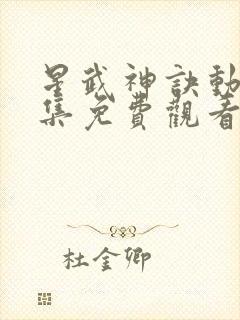 星武神訣動
集免費觀看
杜金卿